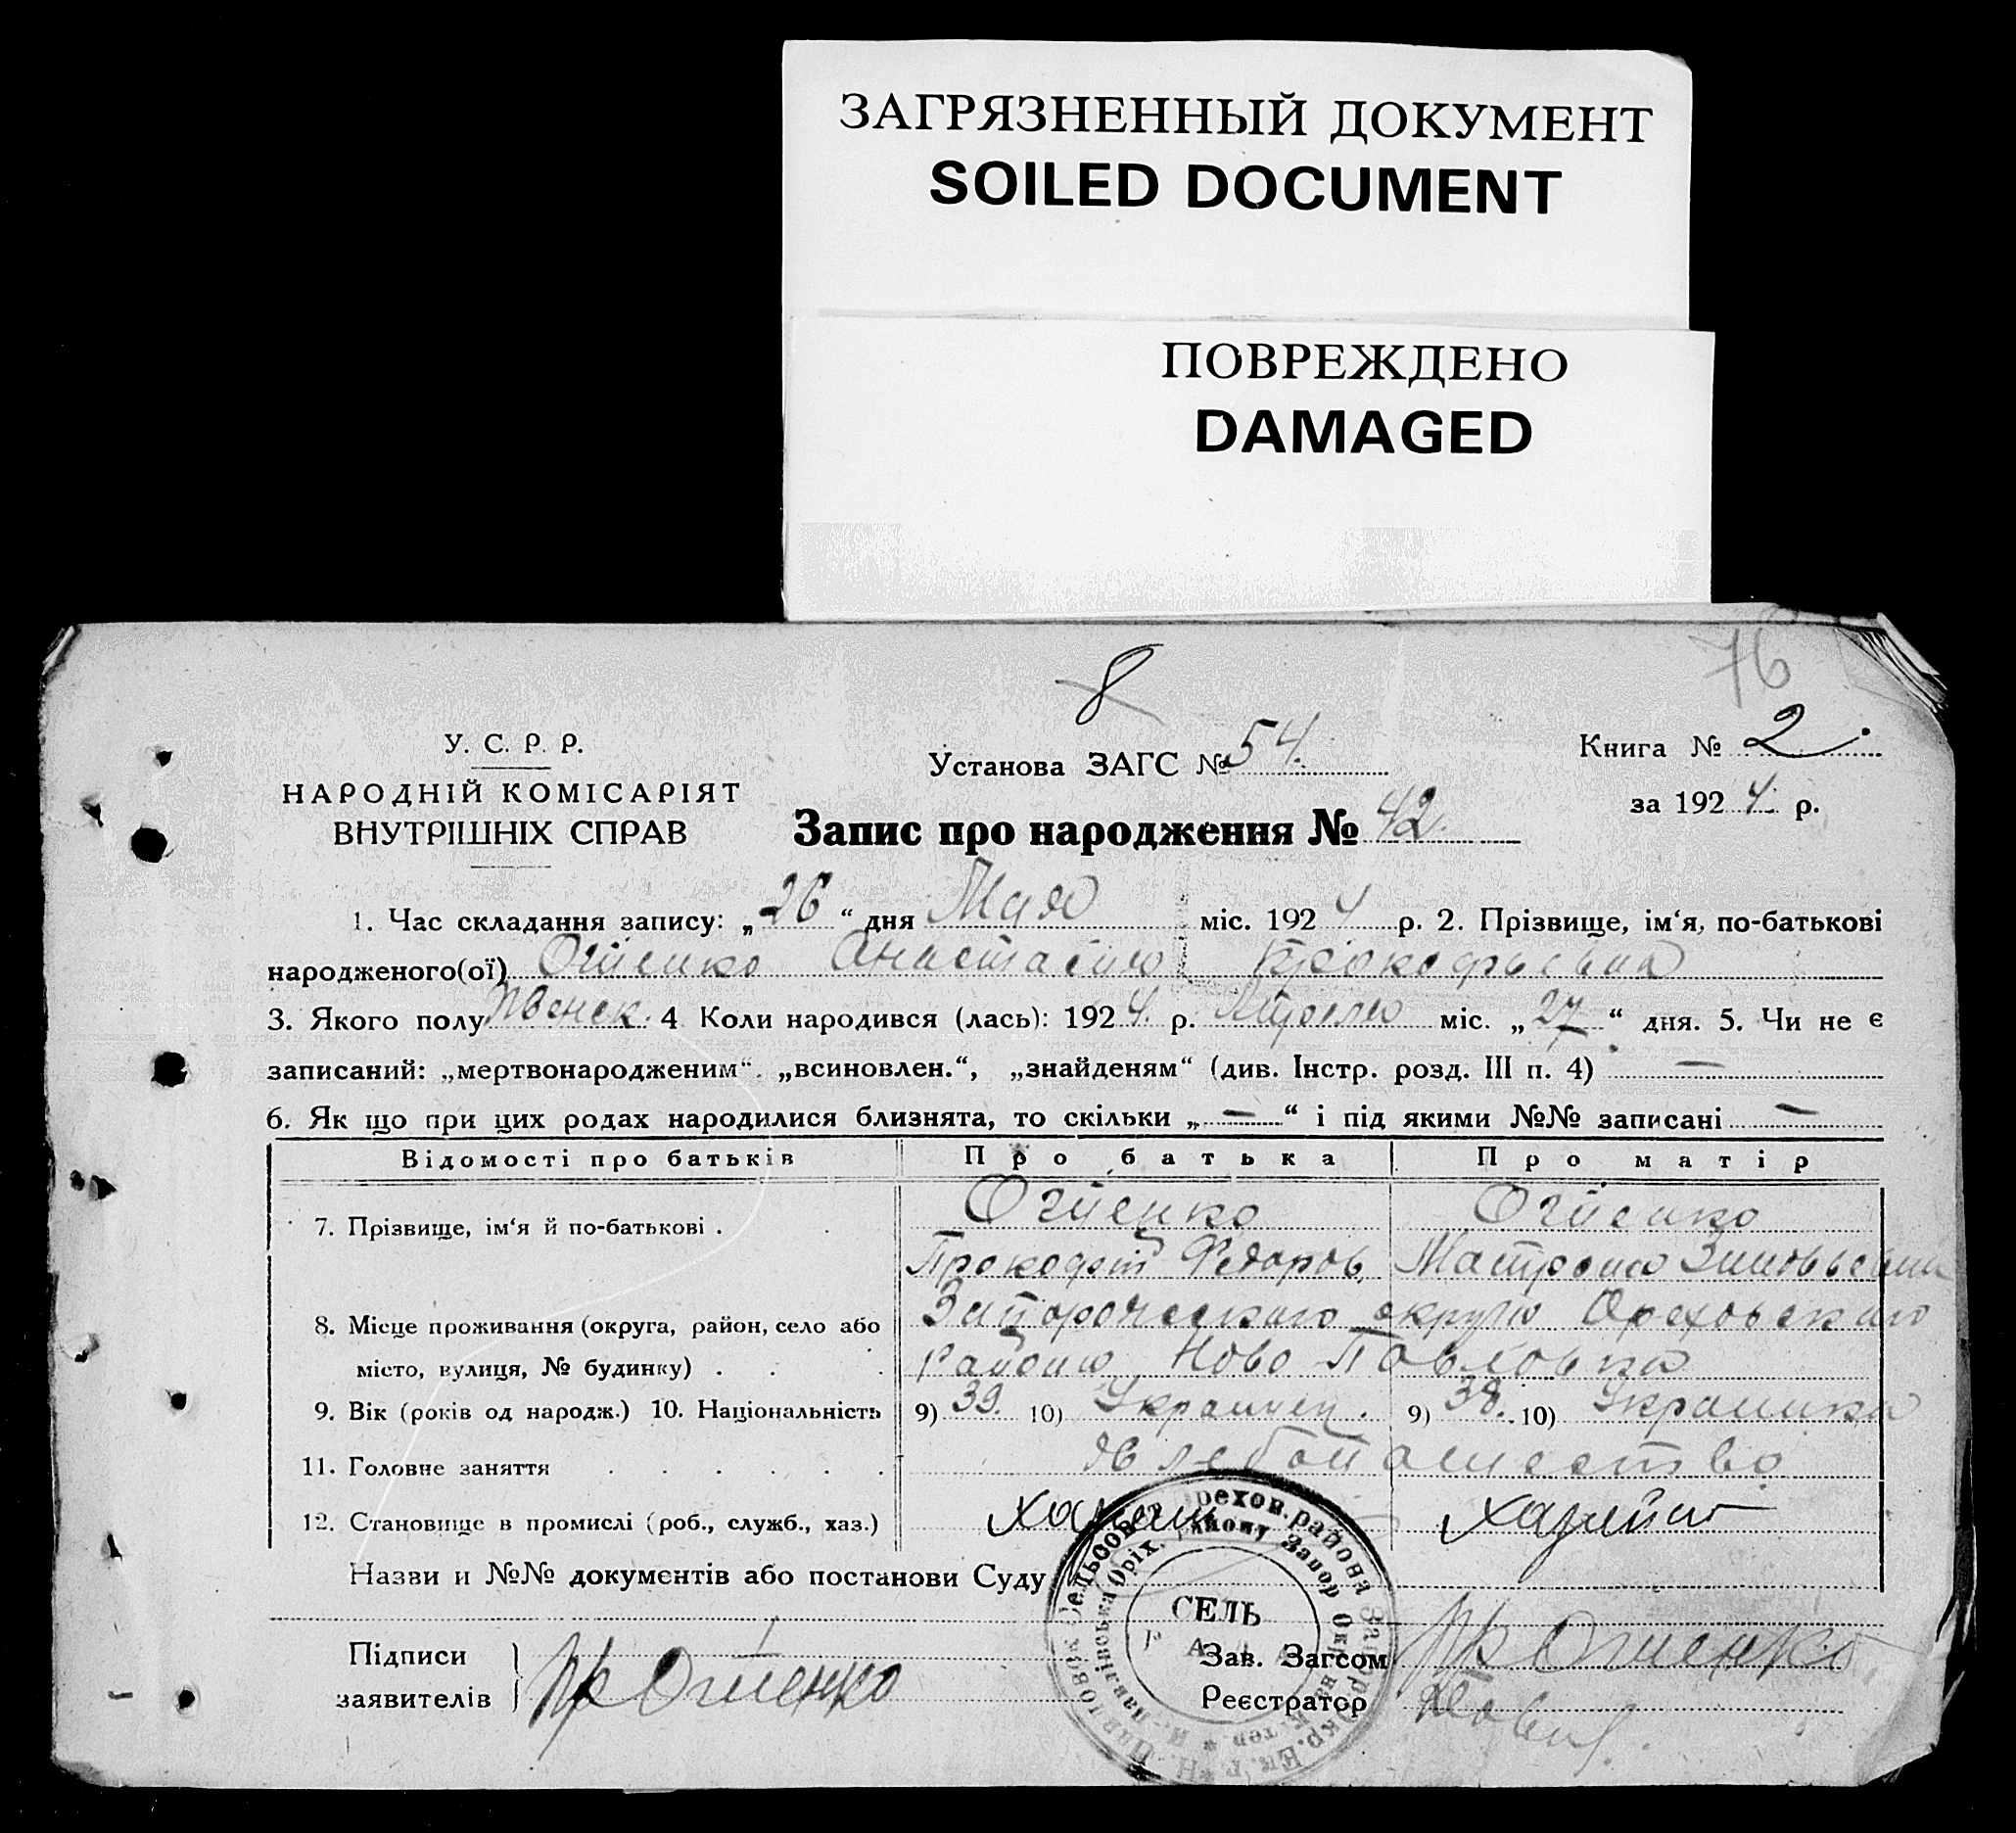 ЗАГРЯЗНЕННЫЙ ДОКУМЕНТ
SOILED DOCUMENT
ПОВРЕЖДЕНО
DAMAGED
8
76
У. С. Р. Р.
НАРОДНІЙ КОМІСАРІЯТ
ВНУТРІШНІХ СПРАВ
Установа ЗАГС № 54.
Книга № 2.
за 1924 р.
Запис про народження № 42.
1. Час складання запису: „26“ дня Мая міс. 1924 р. 2. Прізвище, ім‘я, по-батькові
народженого(ої) Огиенко Анастасия Прокофьевна
3. Якого полу женск. 4 Коли народився (лась): 1924. р. Апреля міс. „27“ дня. 5. Чи не є
записаний: „мертвонародженим“. „всиновлен.“, „знайденям“ (див. Інстр. розд. III п. 4) —
6. Як що при цих родах народилися близнята, то скільки „—“ і під якими №№ записані —
Відомості про батьків Про батька Про матір
7. Прізвище, ім‘я й по-батькові . Огиенко Огиенко
Прокофит Федоров. Матрона Зиновьевна
8. Місце проживання (округа, район, село або Запорожского округа Ореховского
місто, вулиця, № будинку) . района Ново Павловка
9. Вік (років од народж.) 10. Національність 9) 39. 10) Украинец. 9) 38. 10) Украинка
11. Головне заняття хлебопашество
12. Становище в промислі (роб., служб., хаз.) хазяин хазяйка
Назви и №№ документів або постанови Суду
СЕЛЬ
РАДА
Підписи
заявителів Пр Огиенко
Зав. Загсом Пр Огиенко
Реєстратор